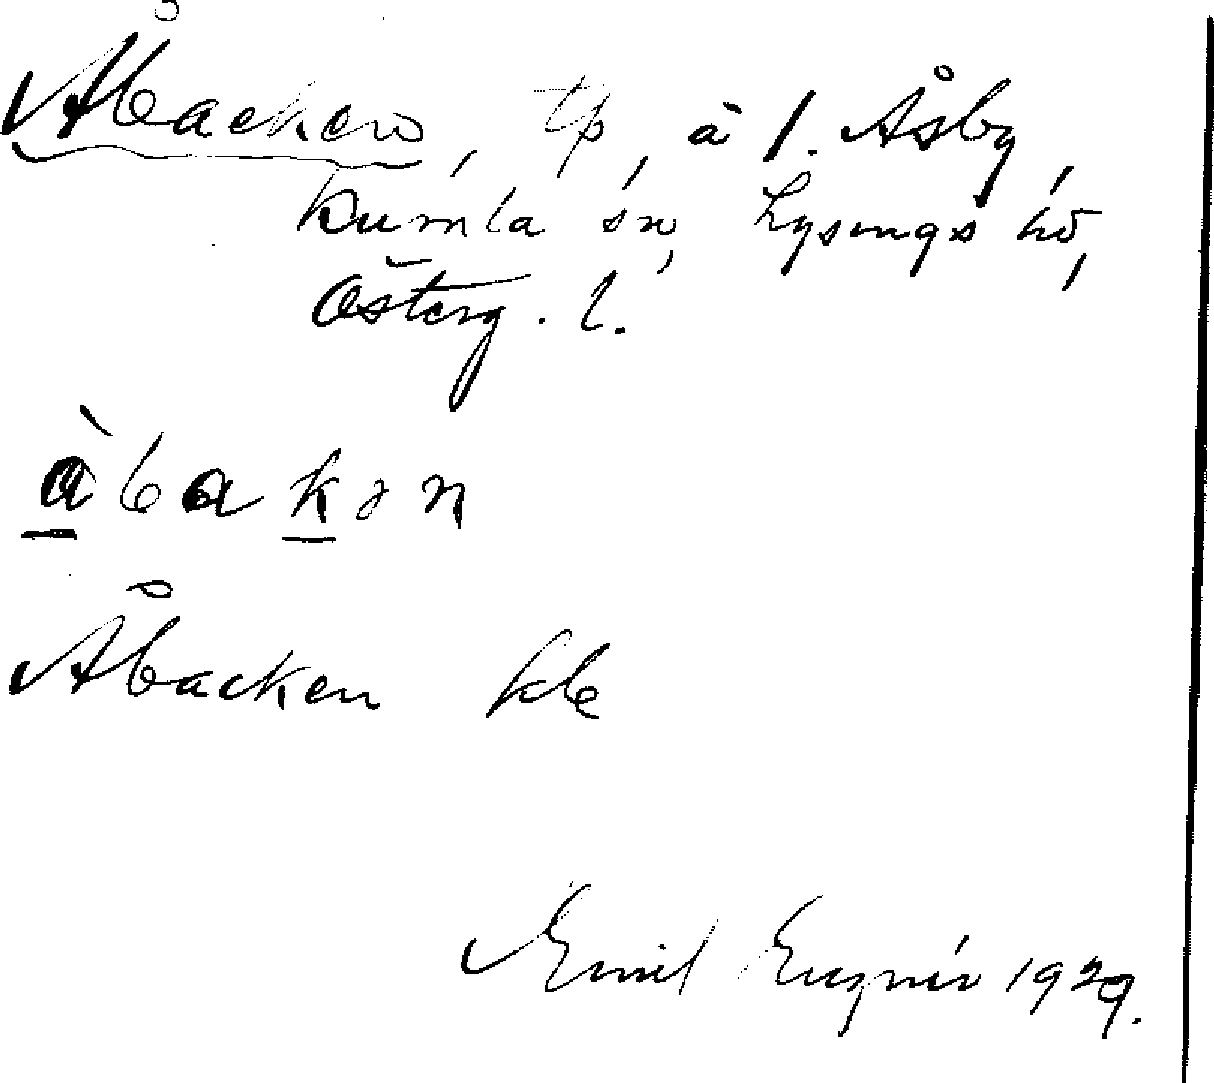 Åbacken, tp, å l. Åsby,
Kumla sn, Lysings hd,
Österg. l.
àbakən
Åbacken kbr
Emil 1929.